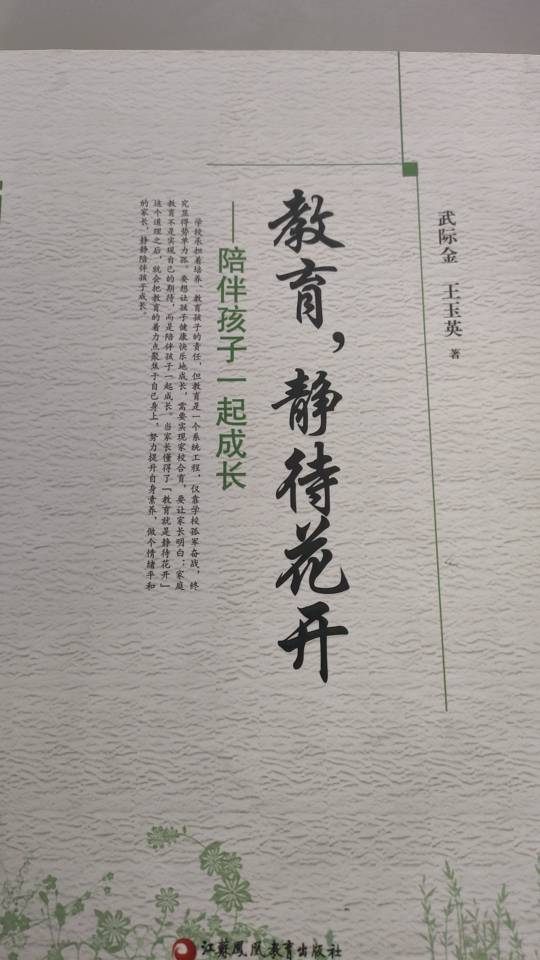 武际金 王玉英 著
教育，静待花开
——陪伴孩子一起成长
学校承担着培养、教育孩子的责任，但教育是一个系统工程，仅靠学校孤军奋战，终
究显得势单力孤。要想让孩子健康快乐地成长，需要实现家校合育，要让家长明白：家庭
教育不是实现自己的期待，而是陪伴孩子一起成长。当家长懂得了「教育就是静待花开」
这个道理之后，就会把教育的着力点聚焦于自己身上，努力提升自身素养，做个情绪平和
的家长，静静陪伴孩子成长。
江苏凤凰教育出版社